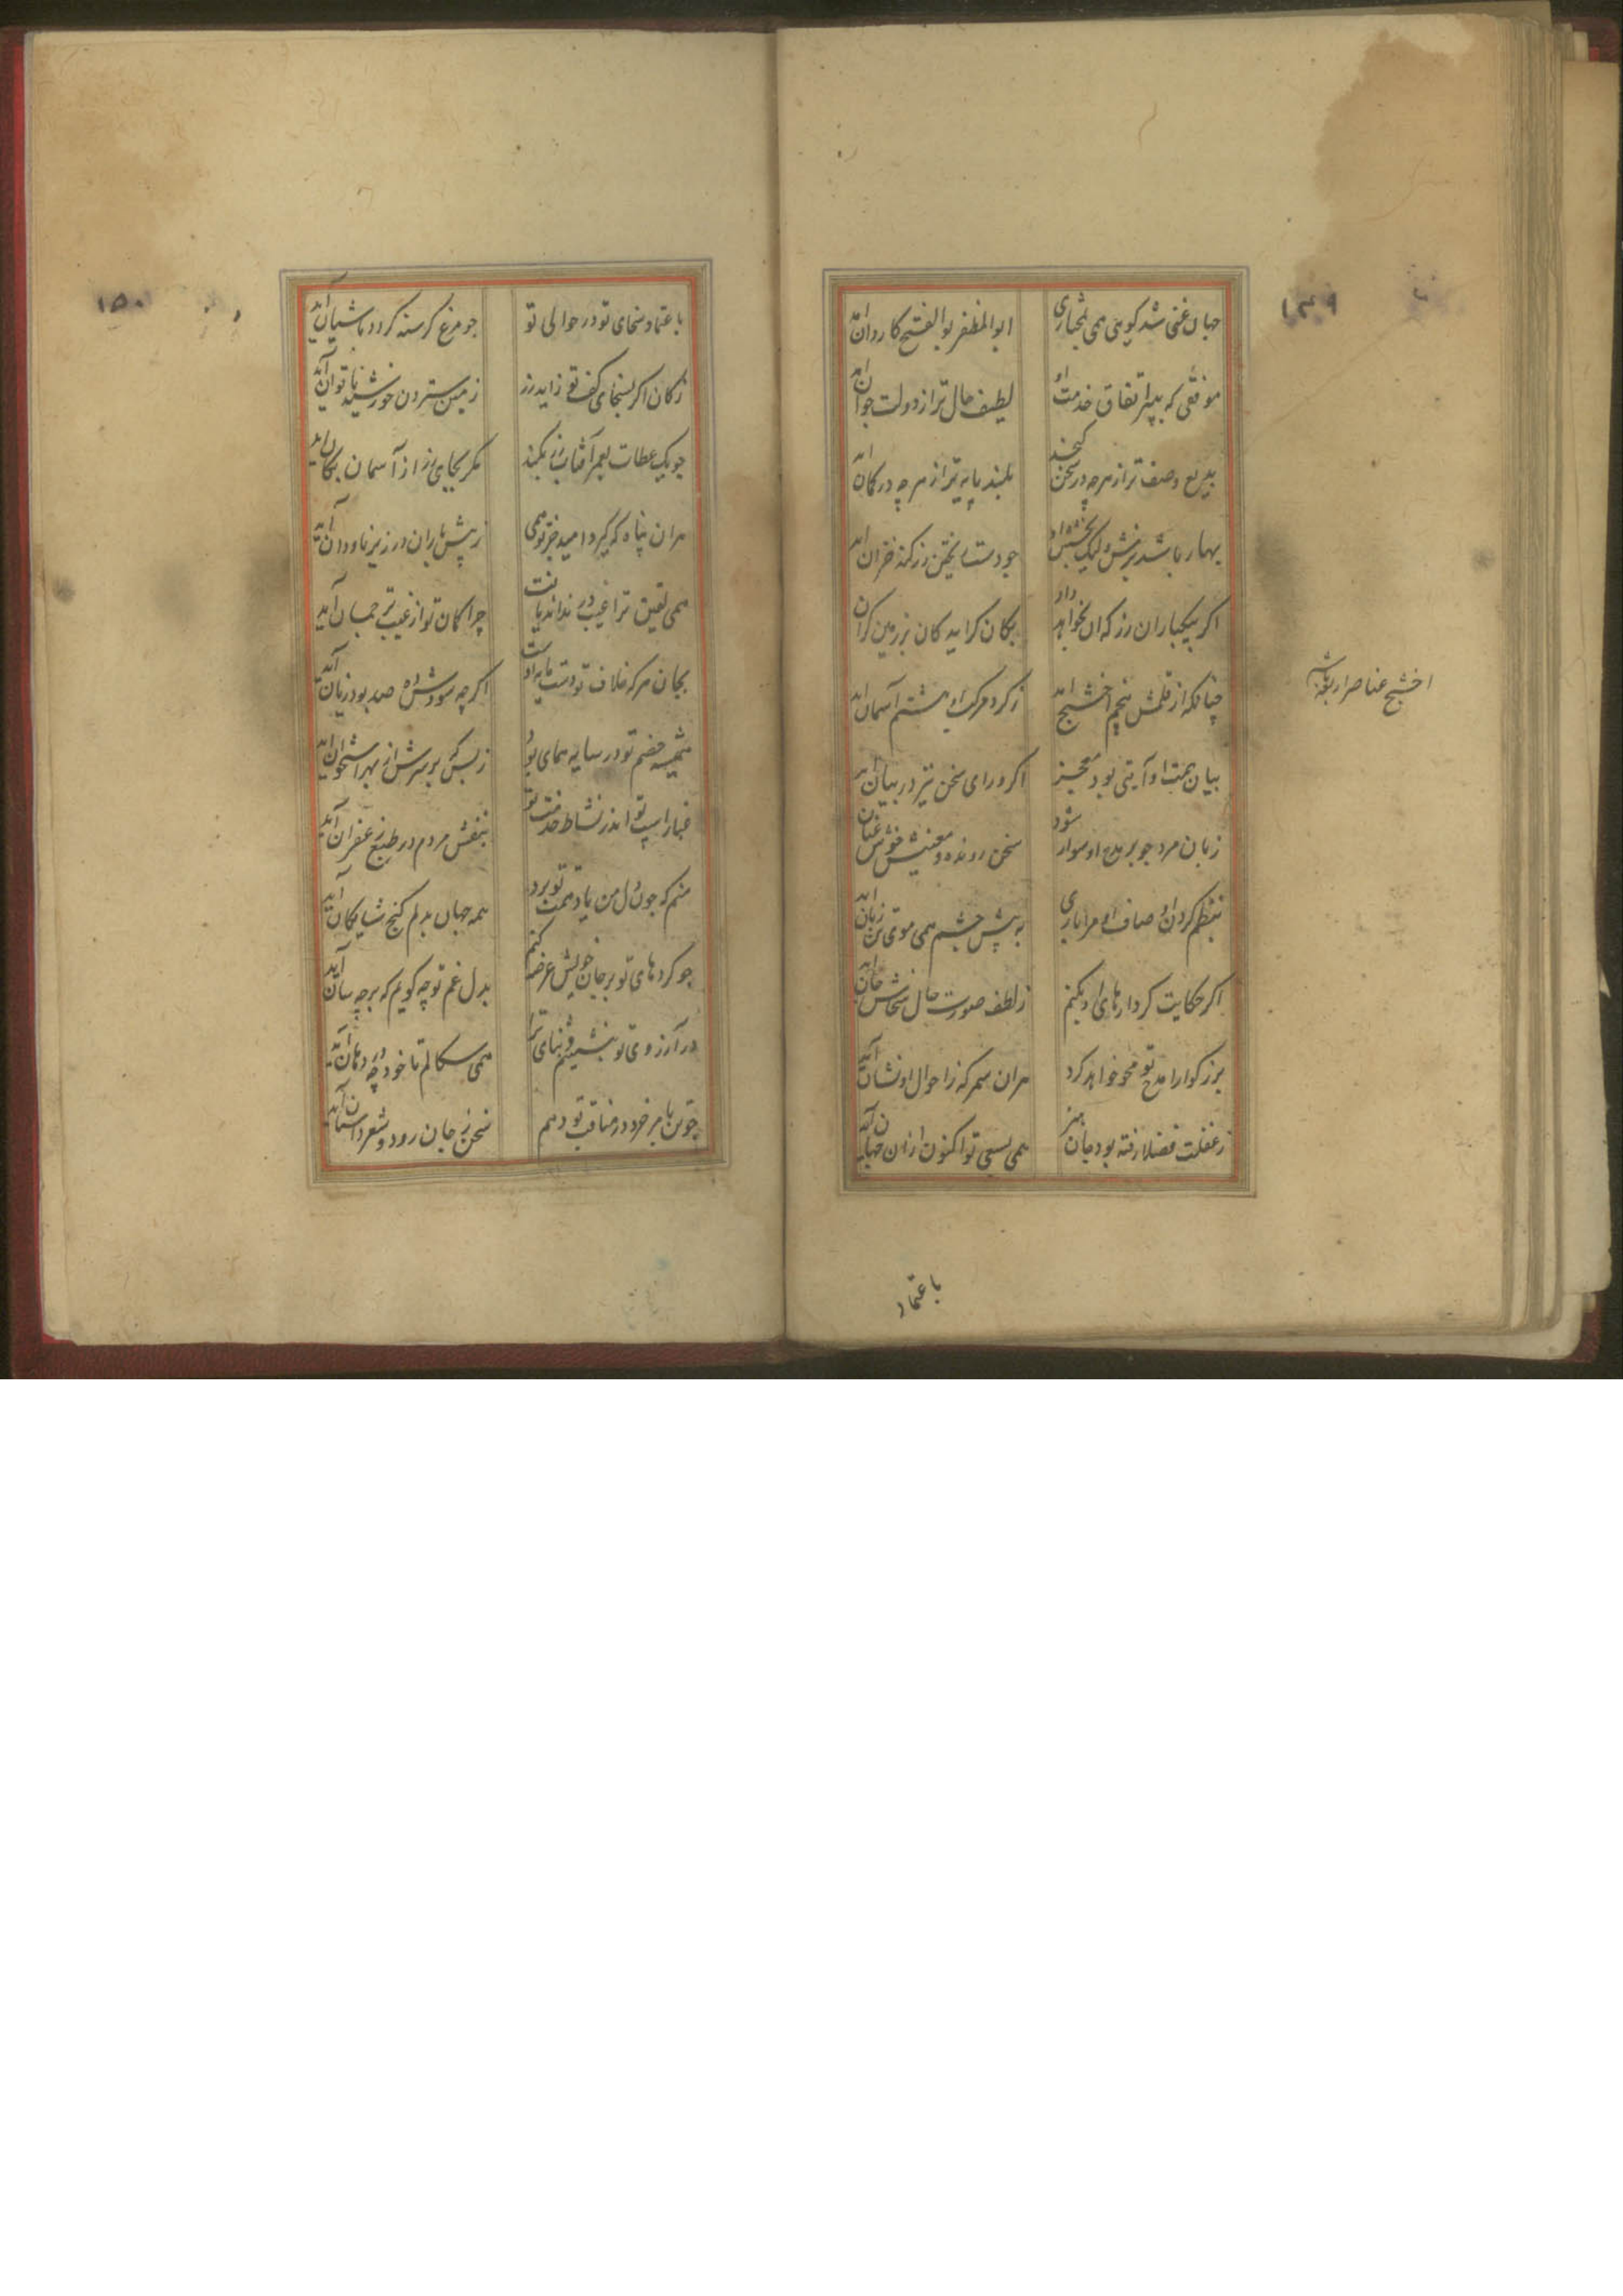 ۱۴۹
جهان غنی شد کویی همی بتجباری ابوالمظفر بوالفتح کاردان امد
موفقی که بپیر اتفاق خدمت او لطیف حال تر از دولت جوان امد
بدیع وصف تر از هرچه در سخن کنجد بلند پایه تر از هرچه در کمان امد
بهار باشد بزمش ولیک بخشش او جو دست ریختن زر کند خزان امد
اگر بیکباران زر که ان بخواهد داد بکان کراید کان بر زمین کران
چنانکه از قلمش پنجم اخشیج امد ز کرد مرکب او هشتم آسمان امد
اخشیج عناصر اربعه باشد
بیان همت او آیتی بود معجز اکر ورای سخن نیز در بیان امد
زبان مرد جو بر مدح او سوار شود سخن رونده و معنیش خوش عنان
بنظم کردن اوصاف او مرا باری به پیش چشم همی موی تن زبان اید
اکر حکایت کردارهای او بکنم ز لطف صورت حال سخاش جان اید
بزرکوارا مدح تو محو خواهد کرد هران سمر که ز احوال او نشان آید
ز غفلت فضلا رفته بود جان هنر همی بسعی تو اکنون ازان جهان آید
باعتماد
۱۵۰
باعتماد سخای تو در حوالی تو جو مرغ کرسنه کردد باشیان آید
ز کان اکر بسخای کف تو زاید زر زمین ستردن خورشید ناتوان آید
جو یک عطات بعمر آفتاب زر بکند مکر بجای زر از آسمان بکان اید
هران پناه که کیرد امید جز تو همی ز پیش باران در زیر ناودان آید
همی یقین ترا غیب در نداند یافت چرا کمان تو از غیب ترجمان آید
بجان هرکه خلاف تو دست مایه اوست اکرچه سودش ده صد بود زیان آید
همیشه خصم تو در سایه همای بود ز بس که بر سرش از بهر استخوان اید
غبار اسپ تو اندر نشاط خدمت تو بنفش مردم در طبع زعفران آید
منم که جون دل من یاد همت تو برد همه جهان بدلم کنج شایکان آید
جو کردهای تو بر جان خویش عرضه کنم بدل غم تو چه کویم که بر چه سان آید
در آرزوی تو بنشینم و ثنای ترا همی سکالم تا خود چه در دهان آید
چو من بامر خرد در مناقب تو دهم سخن ز جان رود و شعر داستان آید